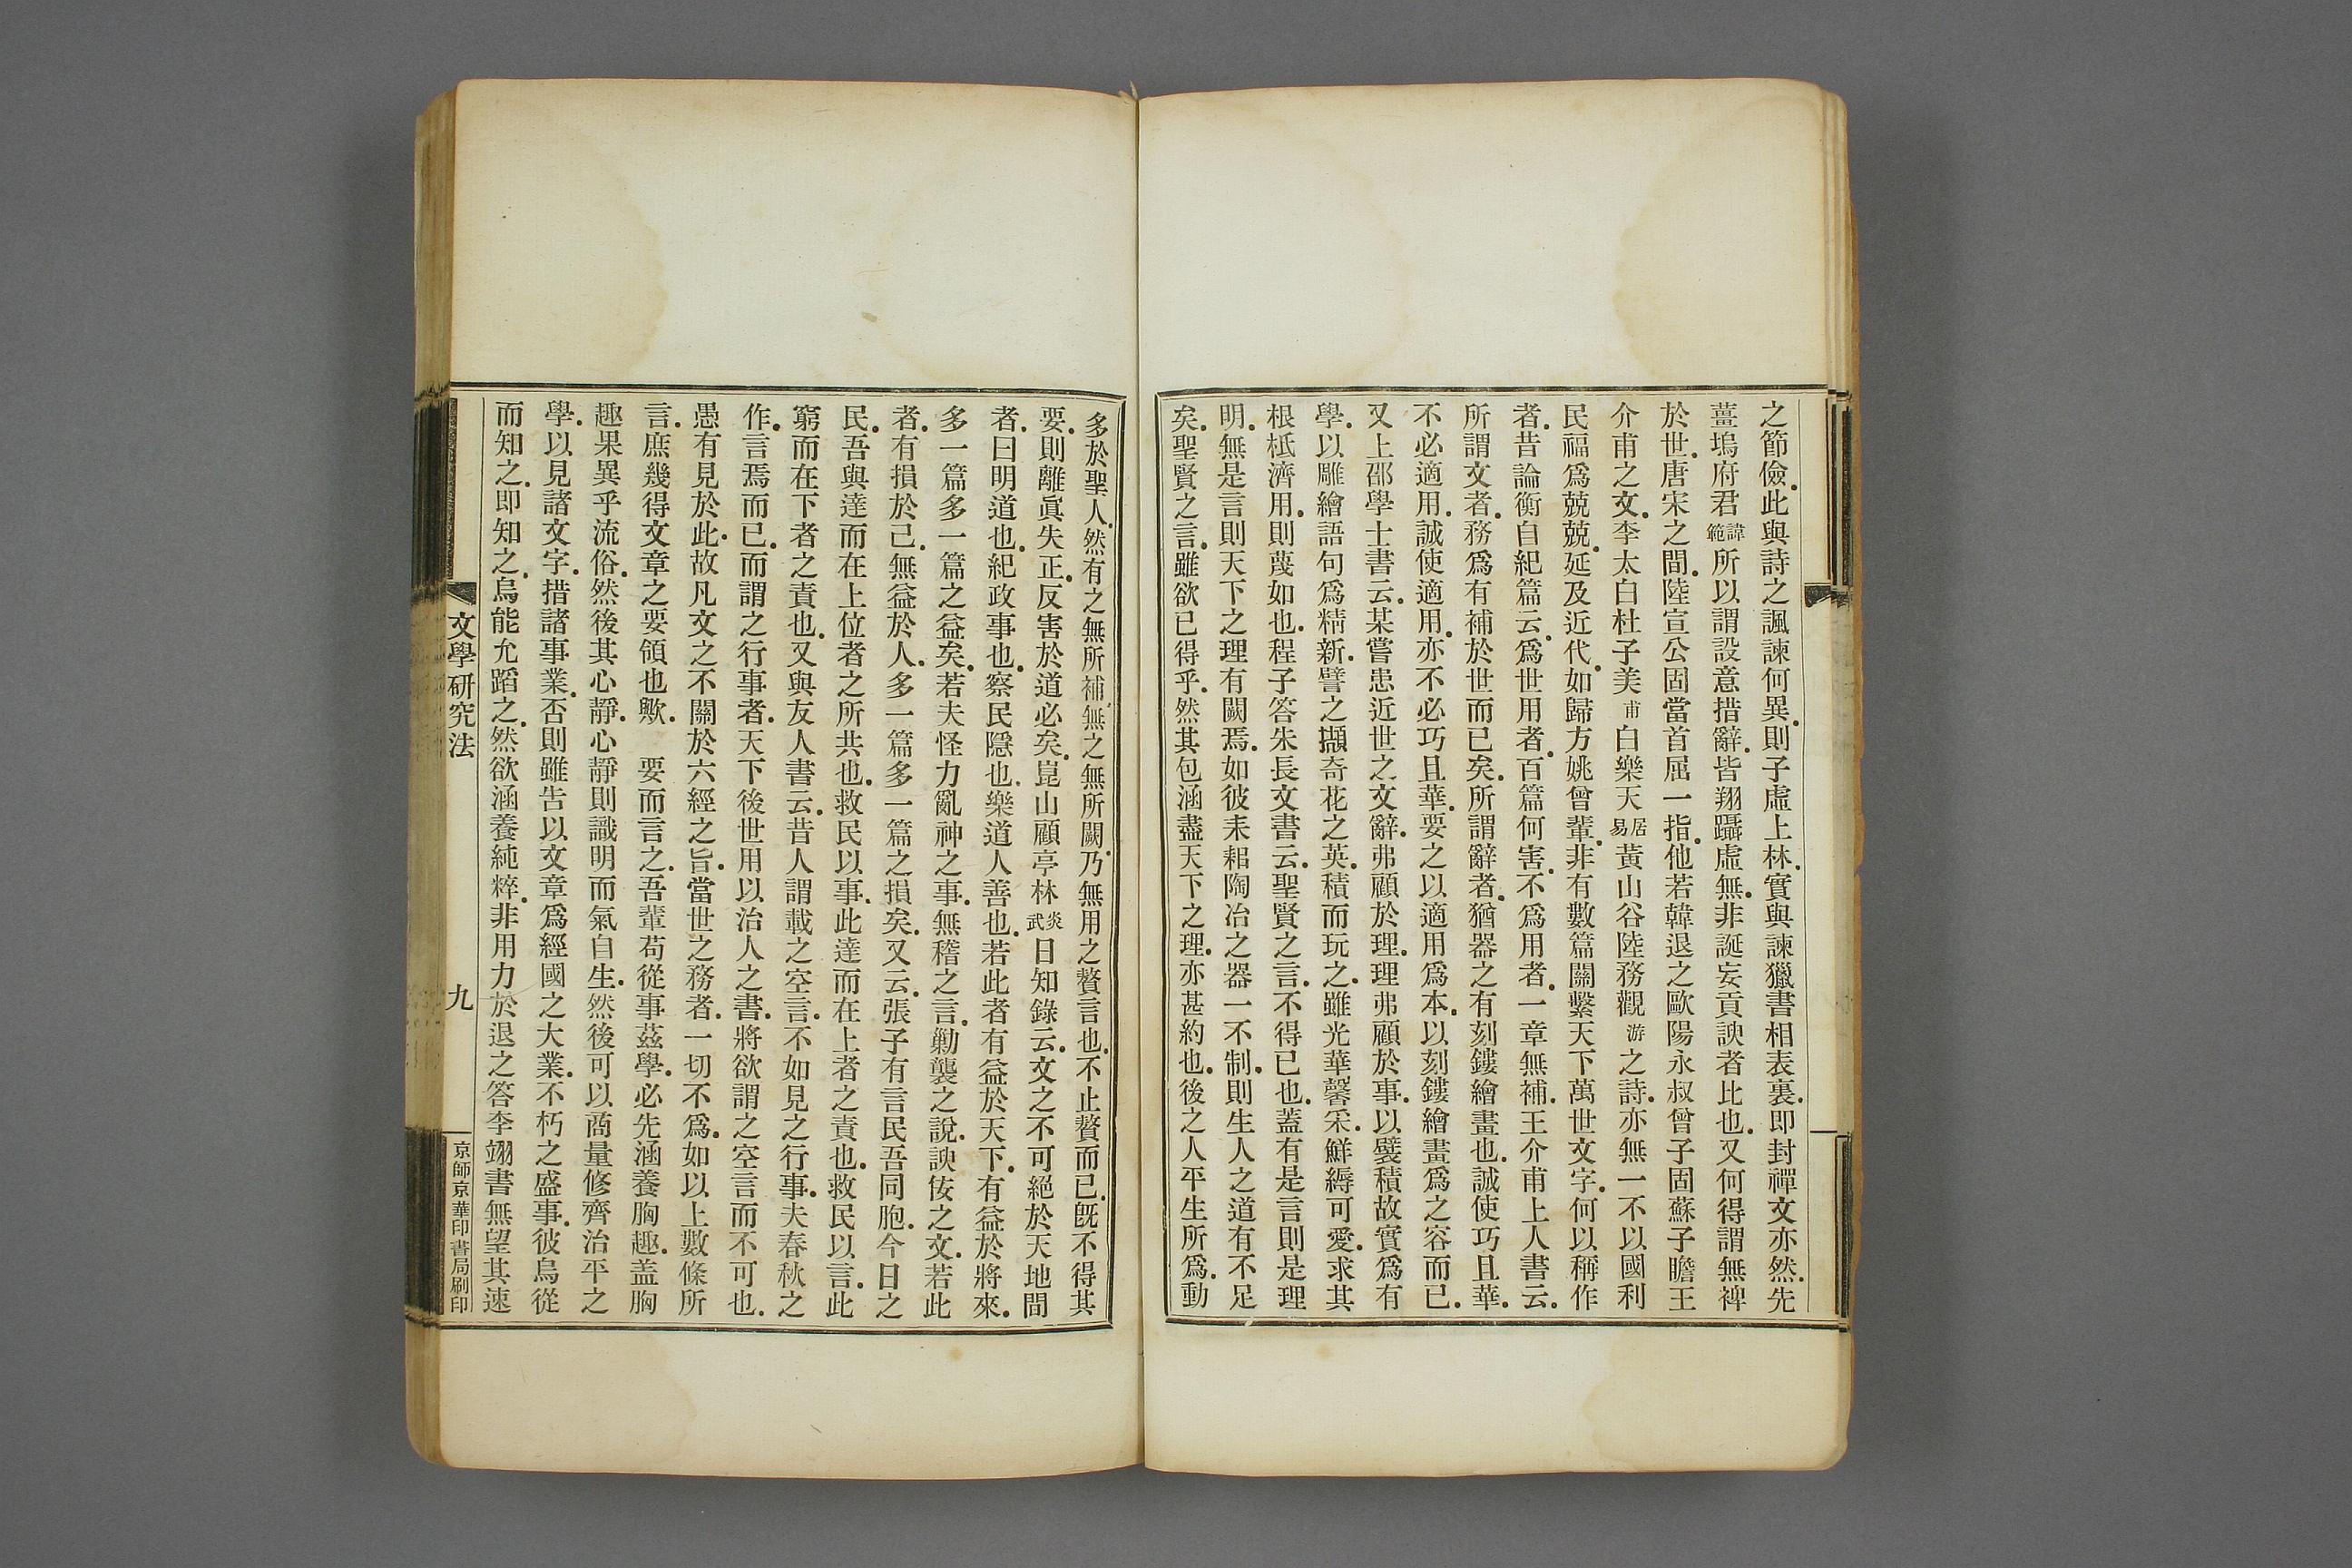 之節儉此與詩之諷諫何異則子虛上林實與諫獵書相表裏即封禪文亦然先
薑塢府君諱範所以謂設意措辭皆翔躡虛無非誕妄貢諛者比也又何得謂無裨
於世唐宋之間陸宣公固當首屈一指他若韓退之歐陽永叔曾子固蘇子瞻王
介甫之文李太白杜子美甫白樂天居易黃山谷陸務觀游之詩亦無一不以國利
民福爲兢兢延及近代如歸方姚曾輩非有數篇關繫天下萬世文字何以稱作
者昔論衡自紀篇云爲世用者百篇何害不爲用者一章無補王介甫上人書云
所謂文者務爲有補於世而已矣所謂辭者猶器之有刻鏤繪畫也誠使巧且華
不必適用誠使適用亦不必巧且華要之以適用爲本以刻鏤繪畫爲之容而已
又上邵學士書云某嘗患近世之文辭弗顧於理理弗顧於事以襞積故實爲有
學以雕繪語句爲精新譬之擷奇花之英積而玩之雖光華馨采鮮縟可愛求其
根柢濟用則蔑如也程子答朱長文書云聖賢之言不得已也蓋有是言則是理
明無是言則天下之理有闕焉如彼耒耜陶冶之器一不制則生人之道有不足
矣聖賢之言雖欲已得乎然其包涵盡天下之理亦甚約也後之人平生所爲動
多於聖人然有之無所補無之無所闕乃無用之贅言也不止贅而已既不得其
要則離眞失正反害於道必矣崑山顧亭林炎武日知錄云文之不可絕於天地間
者曰明道也紀政事也察民隱也樂道人善也若此者有益於天下有益於將來
多一篇多一篇之益矣若夫怪力亂神之事無稽之言勦襲之說諛佞之文若此
者有損於己無益於人多一篇多一篇之損矣又云張子有言民吾同胞今日之
民吾與達而在上位者之所共也救民以事此達而在上者之責也救民以言此
窮而在下者之責也又與友人書云昔人謂載之空言不如見之行事夫春秋之
作言焉而已而謂之行事者天下後世用以治人之書將欲謂之空言而不可也
愚有見於此故凡文之不關於六經之旨當世之務者一切不爲如以上數條所
言庶幾得文章之要領也歟　要而言之吾輩苟從事茲學必先涵養胸趣盖胸
趣果異乎流俗然後其心靜心靜則識明而氣自生然後可以商量修齊治平之
學以見諸文字措諸事業否則雖告以文章爲經國之大業不朽之盛事彼烏從
而知之即知之烏能允蹈之然欲涵養純粹非用力於退之答李翊書無望其速
文學研究法
九
京師京華印書局刷印